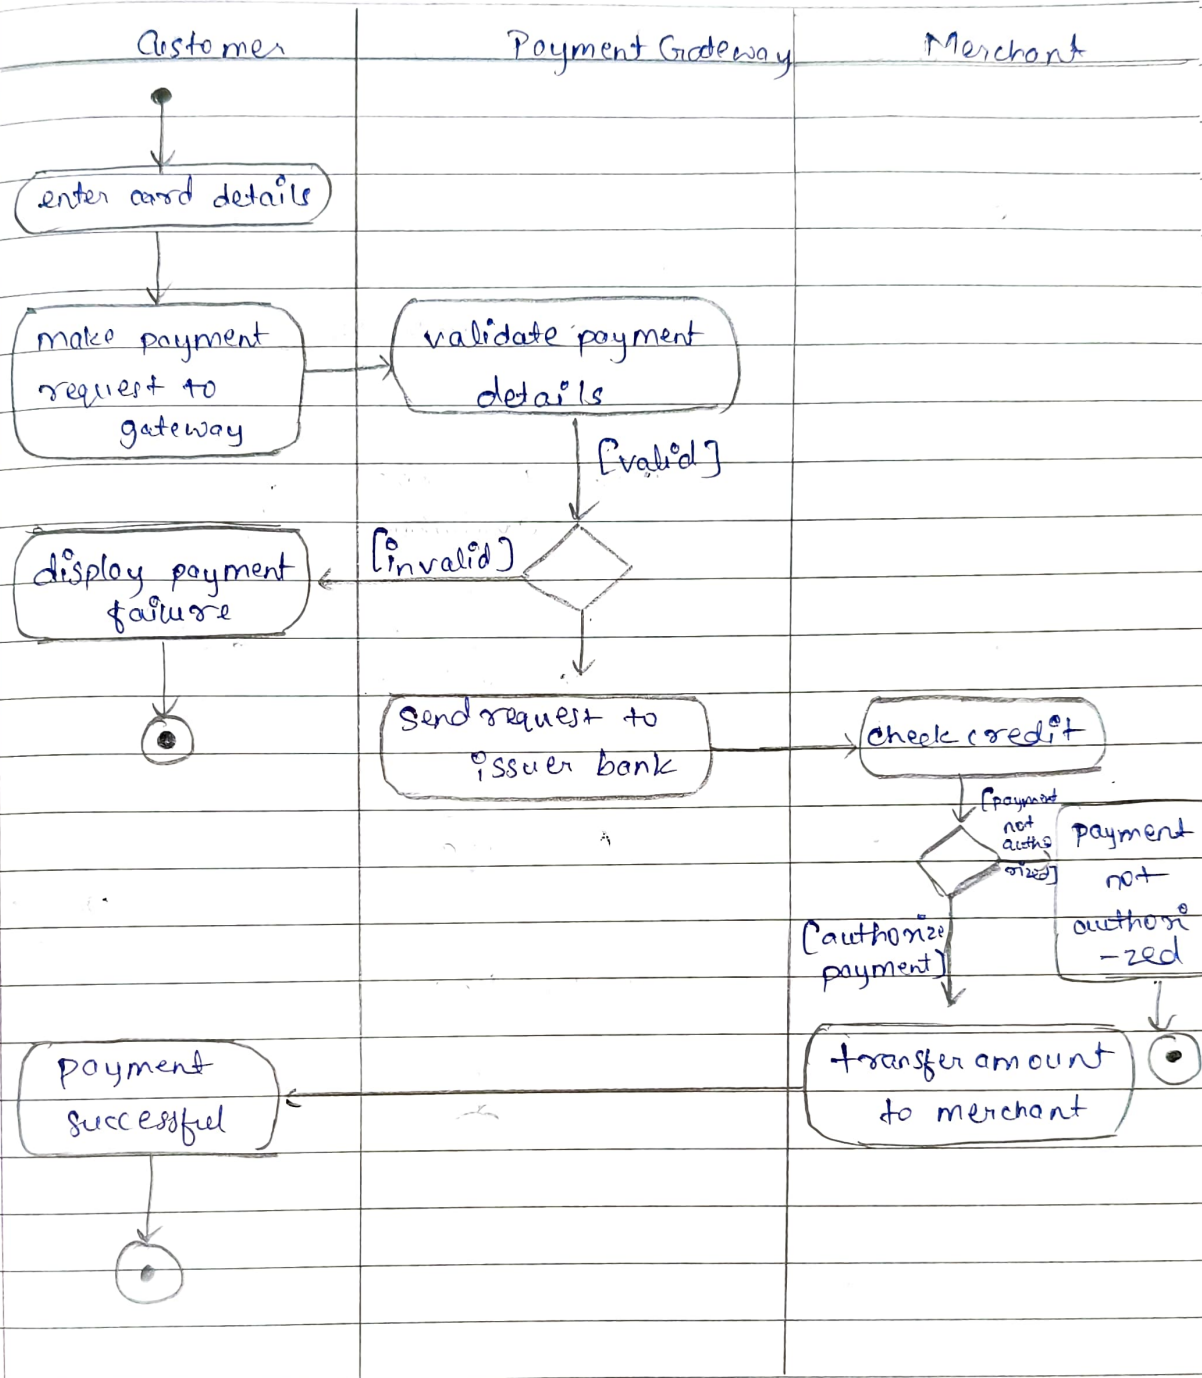 Customer
Payment Gateway
Merchant
enter card details
make payment
request to
gateway
validate payment
details
[valid]
[invalid]
display payment
failure
send request to
issuer bank
check credit
[payment
not
autho
rized]
payment
not
authori
-zed
[authorize
payment]
transfer amount
to merchant
payment
successful